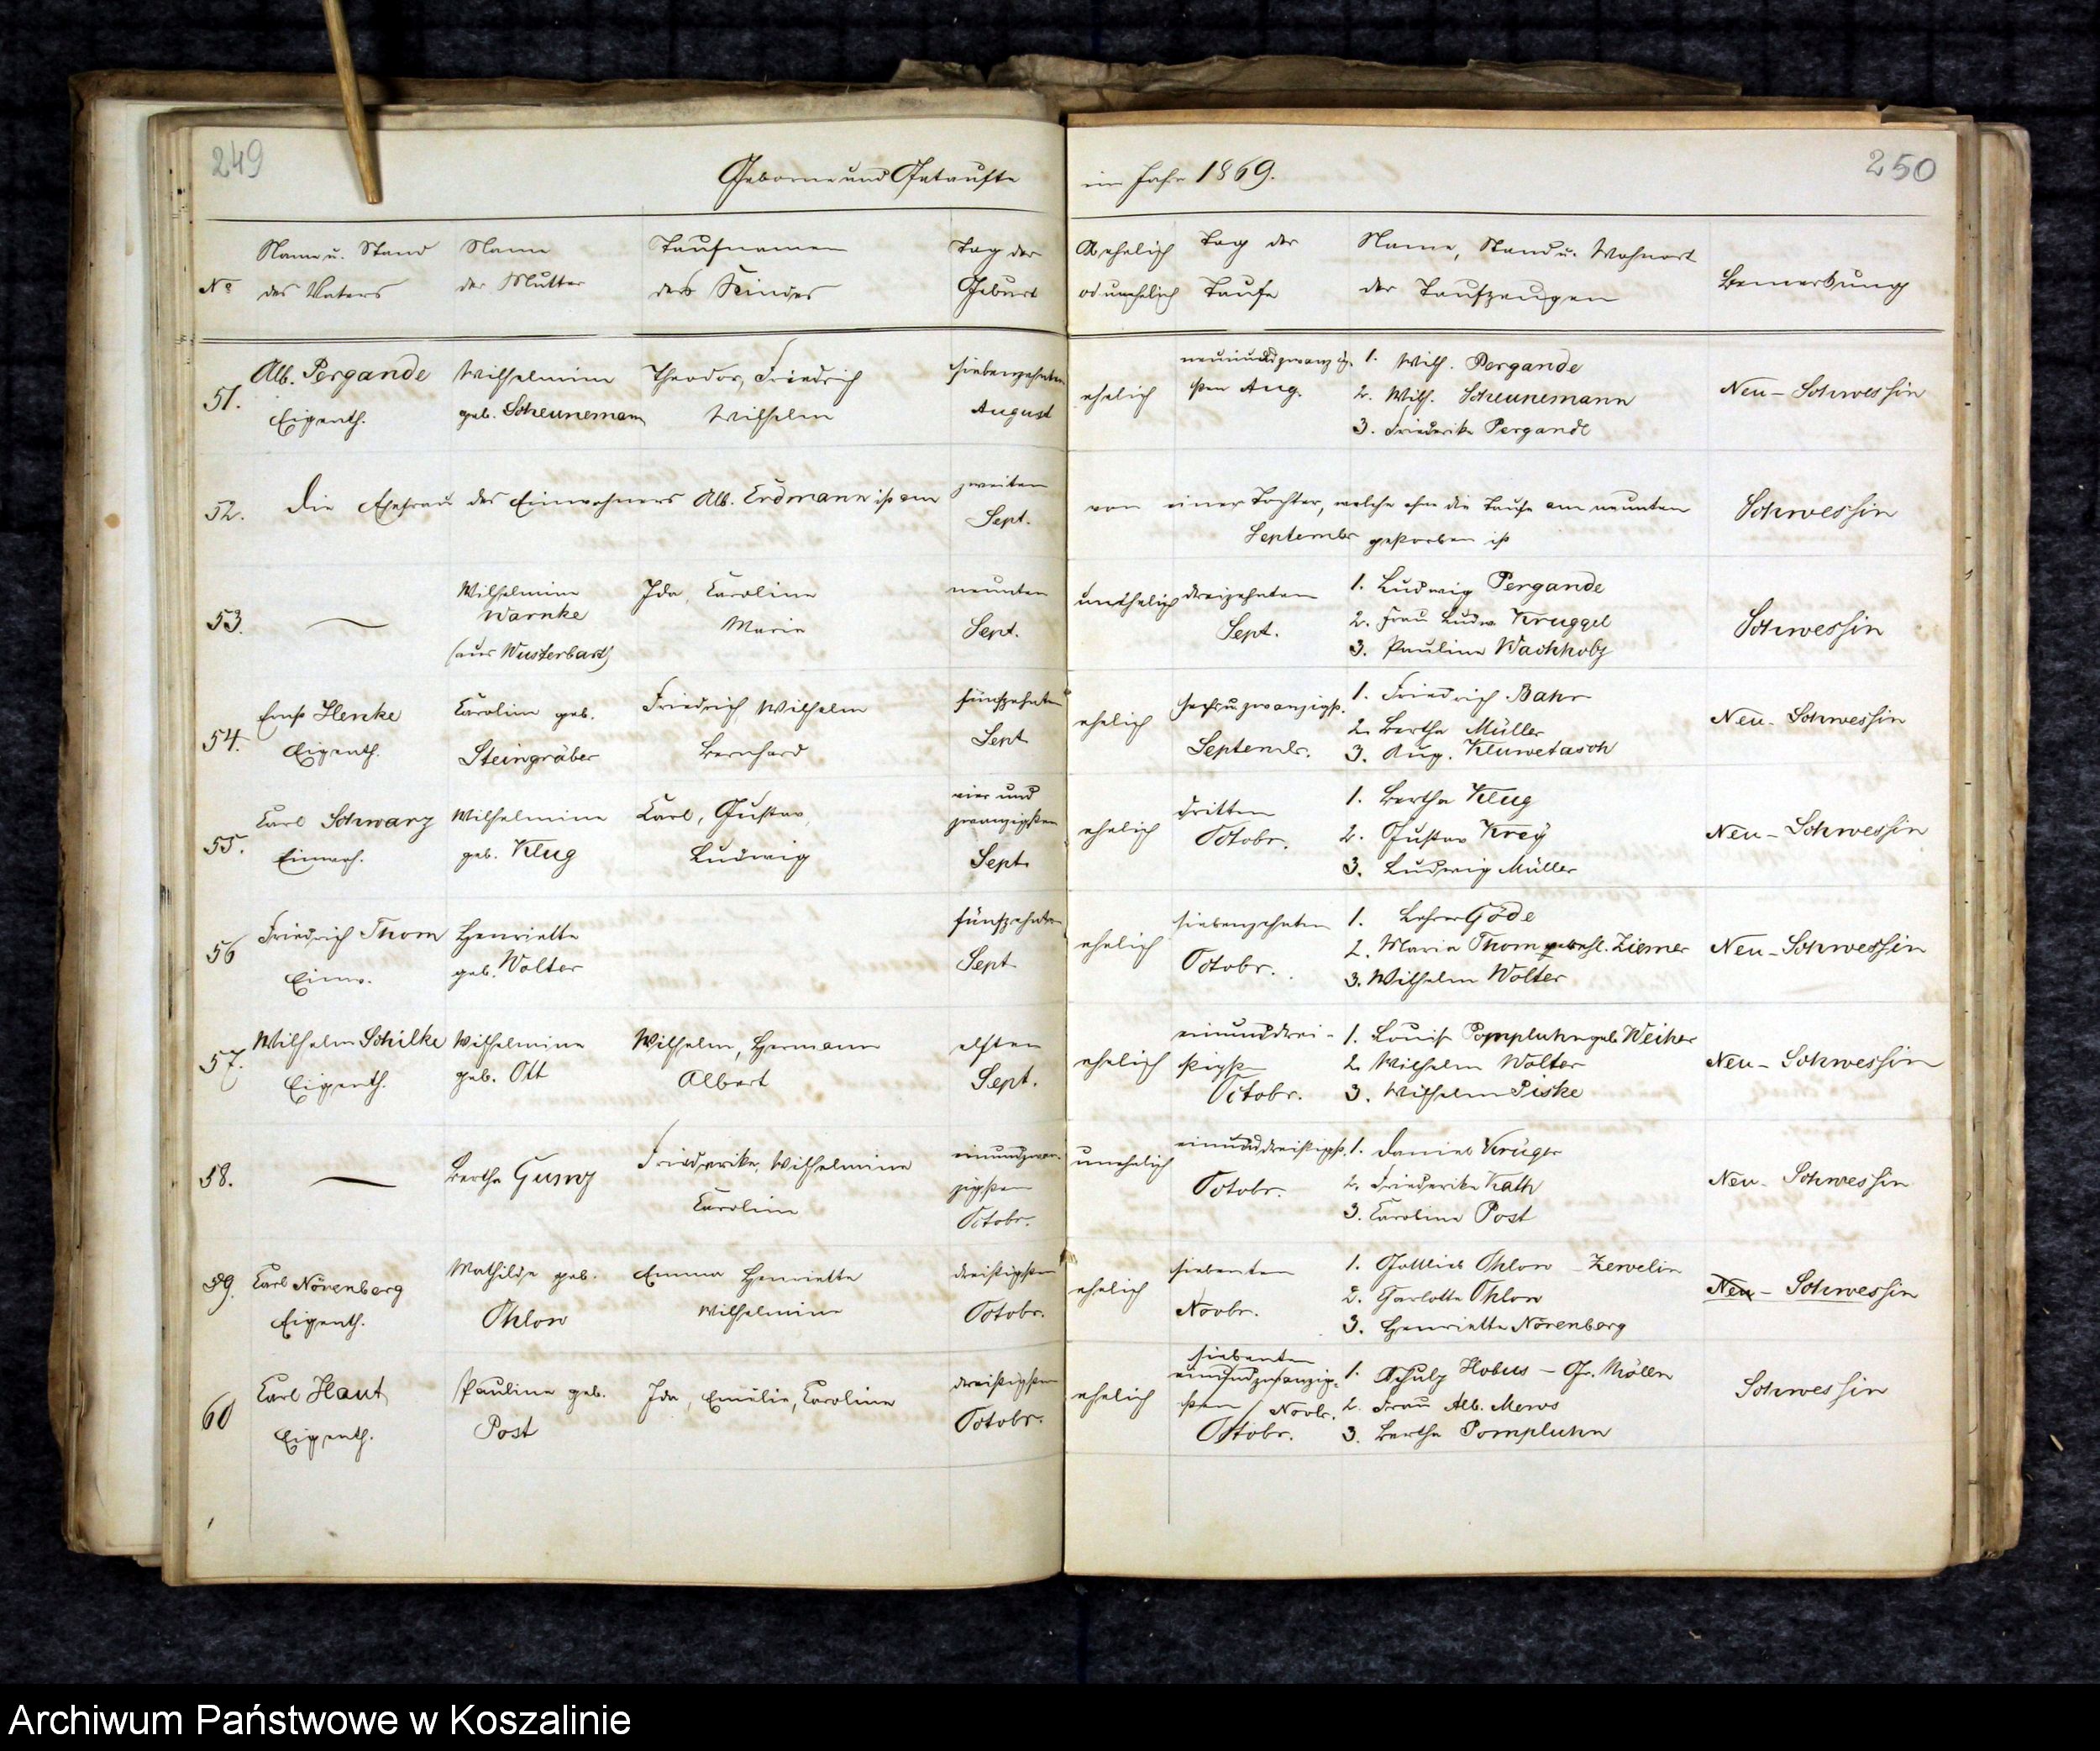 249
Geborne und Getaufte
im Jahr 1869.
250
No
Name u. Stand
des Vaters
Name
der Mutter
Taufnamen
des Kindes
Tag der
Geburt
Ob ehelich
od unehelich
Tag der
Taufe
Name, Stand u. Wohnort
der Taufzeugen
Bemerkung
51.
Alb. Pergande
Eigenth.
Wilhelmine
geb. Scheunemann
Theodor, Friedrich
Wilhelm
siebenzehnten
August
ehelich
neunundzwanzig-
sten Aug.
1. Wilh. Pergande
2. Wilh. Scheunemann
3. Friederike Pergande
Neu-Schwessin
52.
Die Ehefrau des Einwohners Alb. Erdmann ist am
zweiten
Sept.
von einer Tochter, welche ohne die Taufe am neunten
September gestorben ist
Schwessin
53.
Wilhelmine
Warnke
(aus Wusterbarth)
Ida, Caroline
Marie
neunten
Sept.
unehelich
dreizehnten
Sept.
1. Ludwig Pergande
2. Frau Ludw. Kruggel
3. Pauline Wachholz
Schwessin
54.
Ernst Henke
Eigenth.
Caroline geb.
Steingräber
Friedrich Wilhelm
Bernhard
fünfzehnten
Sept
ehelich
sechsuzwanzigst.
Septembr.
1. Friedrich Bahr
2. Bertha Müller
3. Aug. Kluwetasch
Neu-Schwessin
55.
Carl Schwarz
Einwoh.
Wilhelmine
geb. Klug
Carl, Gustav,
Ludwig
vier und
zwanzigsten
Sept.
ehelich
dritten
Octobr.
1. Bertha Klug
2. Gustav Krey
3. Ludwig Müller
Neu-Schwessin
56
Friedrich Thom
Einw.
Henriette
geb. Wolter
fünfzehnten
Sept
ehelich
siebenzehnten
Octobr.
1. Lehrer Göde
2. Maria Thom verehl. Ziemer
3. Wilhelm Wolter
Neu-Schwessin
57.
Wilhelm Schilke
Eigenth.
Wilhelmine
geb. Ott
Wilhelm, Hermann
Albert
elften
Sept.
ehelich
einunddrei-
ßigst
Octobr.
1. Louise Pompluhn geb Weiher
2. Wilhelm Wolter
3. Wilhelm Piske
Neu-Schwessin
58.
Bertha
Friederike, Wilhelmine
Caroline
einundzwan-
zigsten
Octobr.
unehelich
einunddreißigst.
Octobr.
1. Daniel Krüger
2. Friederike Kath
3. Caroline Post
Neu-Schwessin
59.
Carl Nörenberg
Eigenth.
Mathilde geb.
Ohlow
Emma Henriette
Wilhelmine
dreißigsten
Octobr.
ehelich
siebenten
Novbr.
1. Gottlieb Ohlow - Zewelin
2. Charlotte Ohlow
3. Henriette Nörenberg
Neu-Schwessin
60
Carl Haut
Eigenth.
Pauline geb.
Post
Ida, Emilie, Caroline
dreißigsten
Octobr.
ehelich
siebenten
einundzwanzig-
sten / Novbr.
Octobr.
1. Schulz Hobus - Gr. Möllen
2. Frau Alb. Mews
3. Bertha Pompluhn
Schwessin
Archiwum Państwowe w Koszalinie